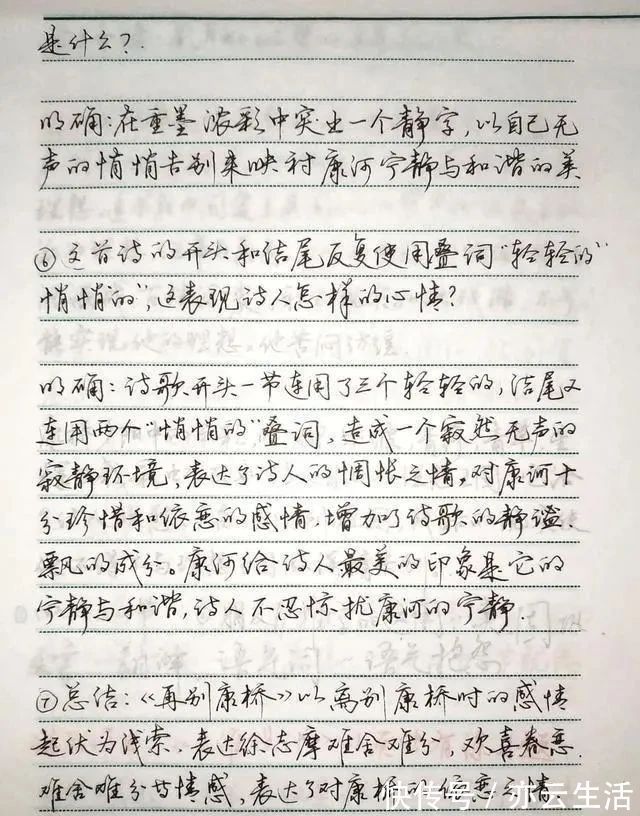 是什么?
明确:在重墨浓彩中突出一个静字,以自己无
声的悄悄告别来映衬康河宁静与和谐的美
⑥这首诗的开头和结尾反复使用叠词“轻轻的”
悄悄的”,这表现诗人怎样的心情?
明确:诗歌开头一节连用了三个轻轻的,结尾又
连用两个“悄悄的”叠词,造成一个寂然无声的
寂静环境,表达了诗人的惆怅之情,对康河十
分珍惜和依恋的感情,增加了诗歌的静谧
飘的成分。康河给诗人最美的印象是它的
宁静与和谐,诗人不忍惊扰康河的宁静.
⑦总结:《再别康桥》以离别康桥时的感情
起伏为线索,表达徐志摩难舍难分,欢喜眷恋
难舍难分的情感,表达了对康桥的依恋之情
快传号/亦云生活